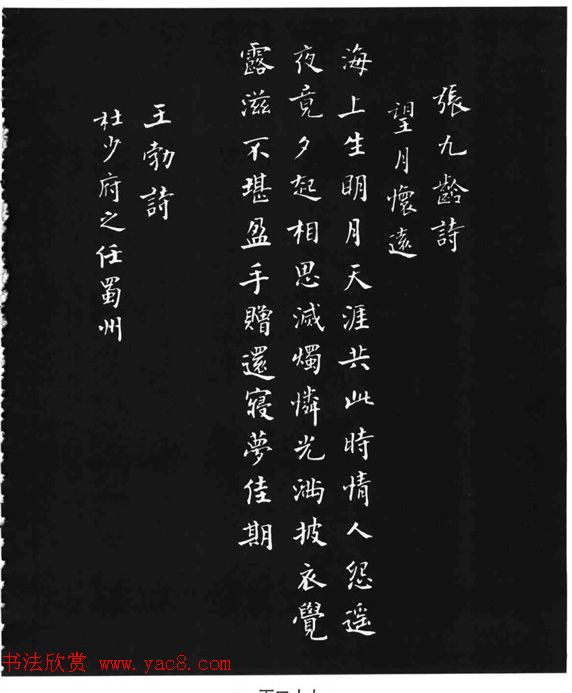 張九齡詩
望月懷遠
海上生明月天涯共此時情人怨遥
夜竟夕起相思滅燭憐光滿披衣覺
露滋不堪盈手贈還寢夢佳期
王勃詩
杜少府之任蜀州
书法欣赏 www.yac8.com